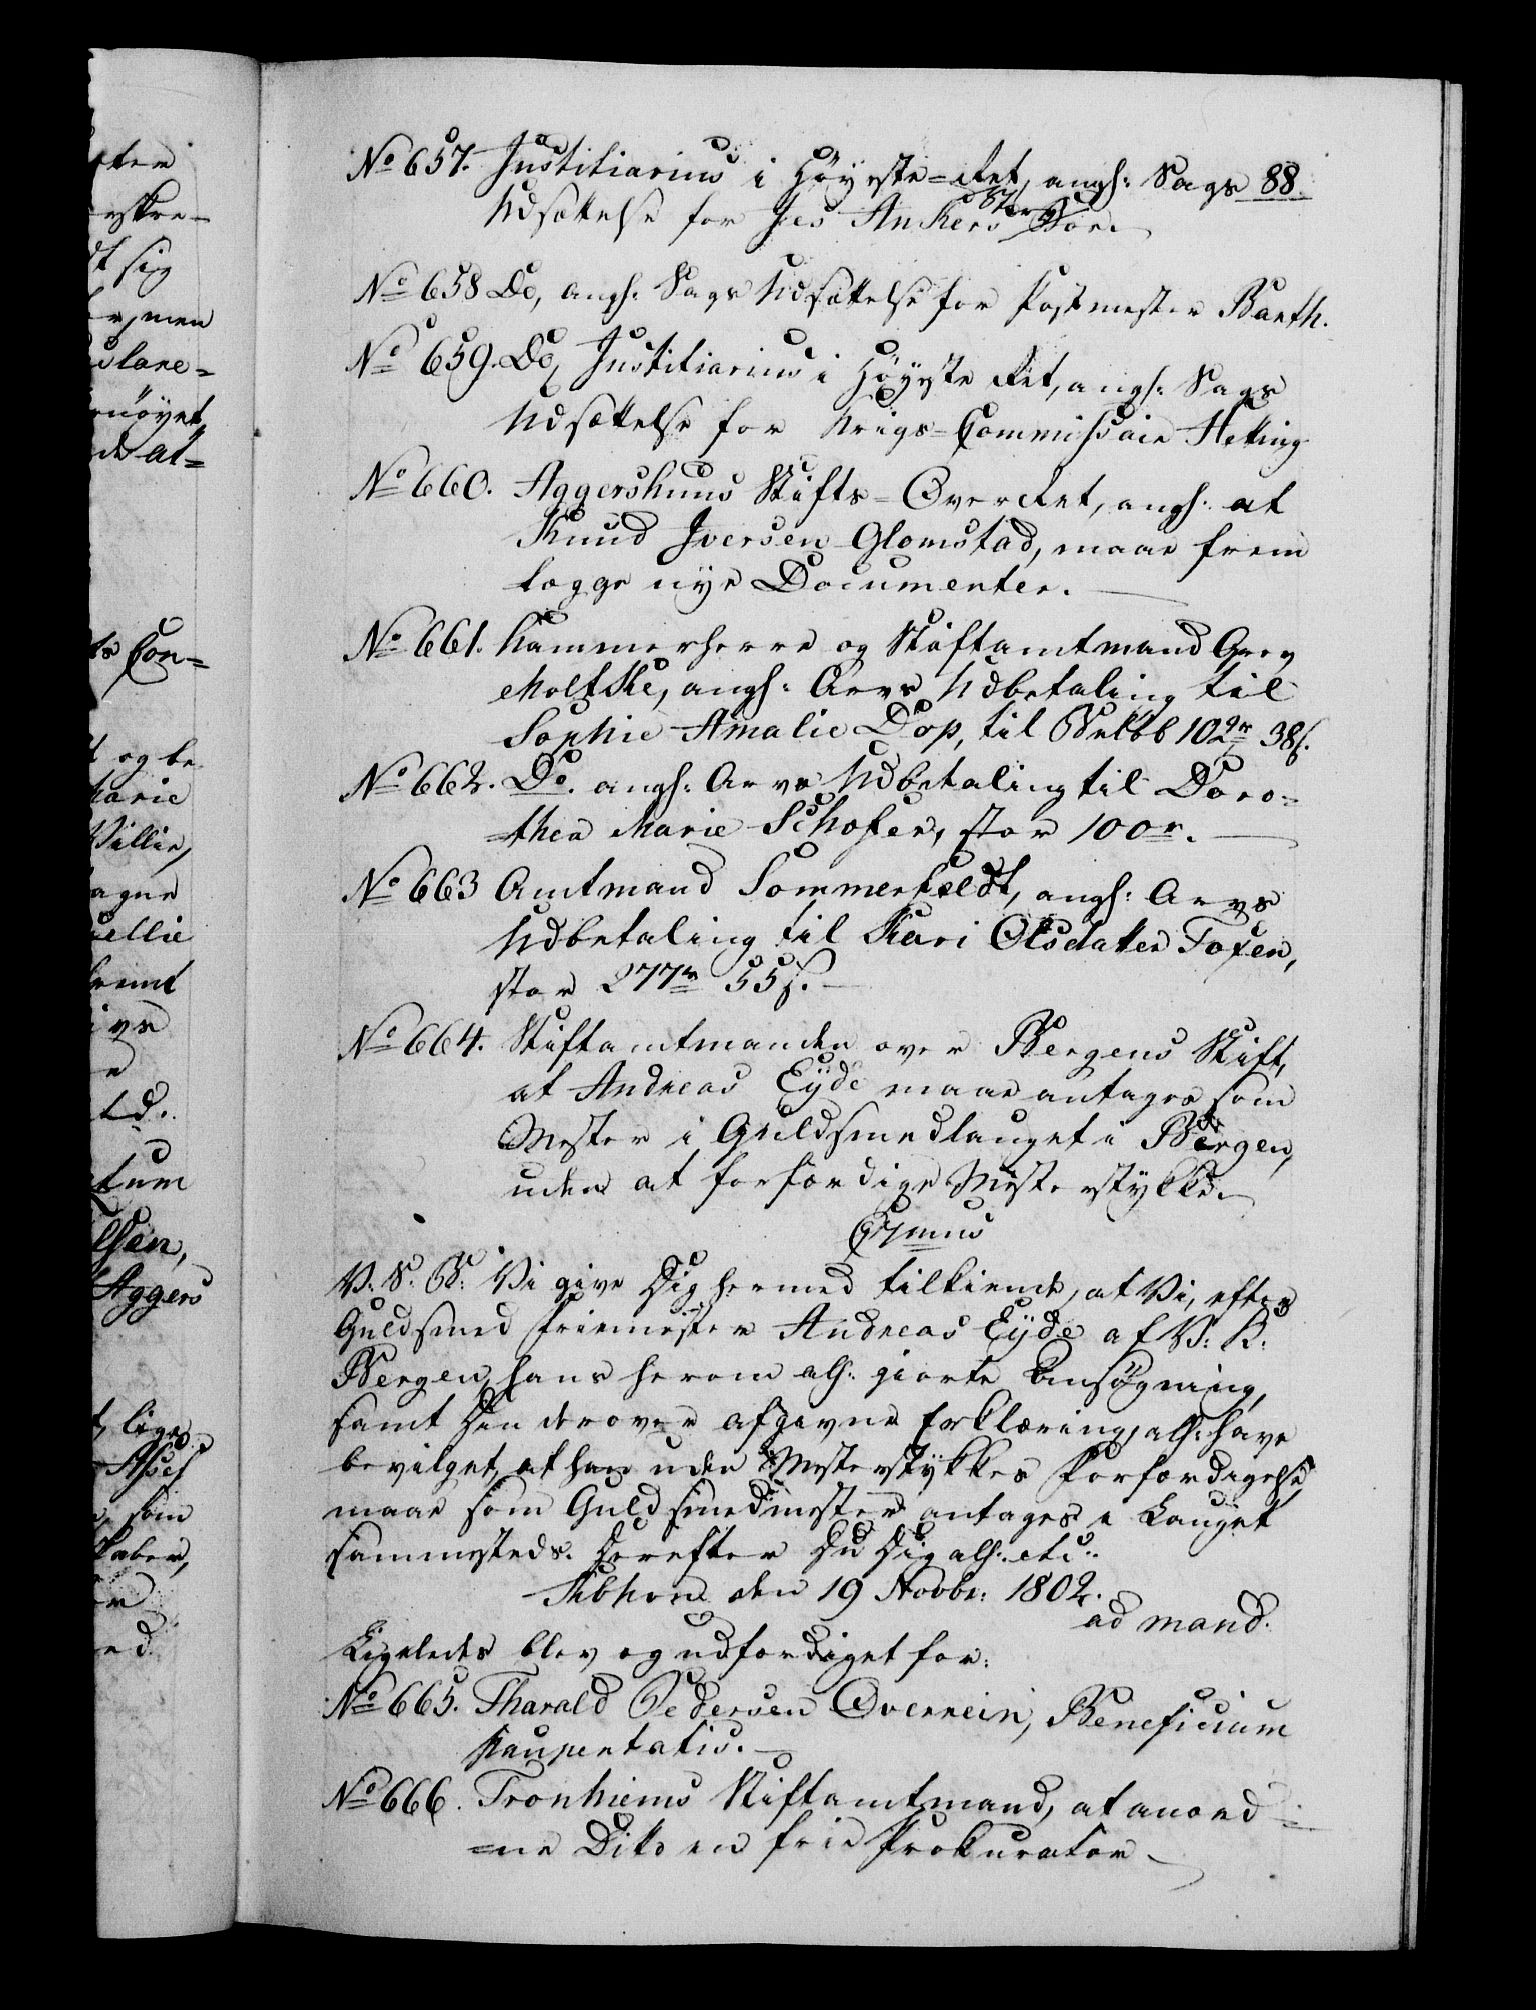 88.
No 657. Justitiarius i Høyeste=Ret, angh: Sags
Udsættelse for Jes Ankers
No 658 Do, angh: Sags Udsættelse for Postmester Barth.
No 659. Do, Justitiarius i Høyeste Ret, angh: Sags
Udsættelse for Krigs=Commissair Hetting
No 660. Aggershuus Stifts=OverRet, angh: at
Knud Iversen Glomstad, maae frem
lægge nye Documenter.
No 661. Kammerherre og Stiftamtmand Grev
Moltke, angh: Arvs Udbetaling til
Sophie Amalie Dop, til Beløb 102 r 38 s.
No 662. Do. angh: Arvs Udbetaling til Doro=
=thea Marie Schofer, stor 100 r.
No 663 Amtmand Sommerfeldt, angh: Arvs
Udbetaling til Kari Olsdatter Tofen,
stor 277 r 55 s.
No 664. Stiftamtmanden over Bergens Stift,
at Andreas Eyde maae antages som
Mester i Guldsmedlauget i Bergen,
uden at forfærdige Mesterstykke.
V. S. B: Vi give Dig hermed tilkiende, at Vi, efter
Guldsmed Friemester Andreas Eyde af V: K:
Bergen, hans herom alh: giorte Ansøgning,
samt Din derover afgivne Erklæring, alh: have
bevilget, at han uden Mesterstykkes Forfærdigelse
maae som Guldsmedmester antages i Lauget
sammesteds. Derefter Du Dig alh: etc:
Kbhvn den 19 Novbr: 1802.
ad mand.
Ligeledes blev og udfærdiget for:
No 665. Tharald Pedersen Overrein, Beneficium
Paupertatis.
No 666. Tronhiems Stiftamtmand, at anord=
=ne Ditto en frie Prokurator